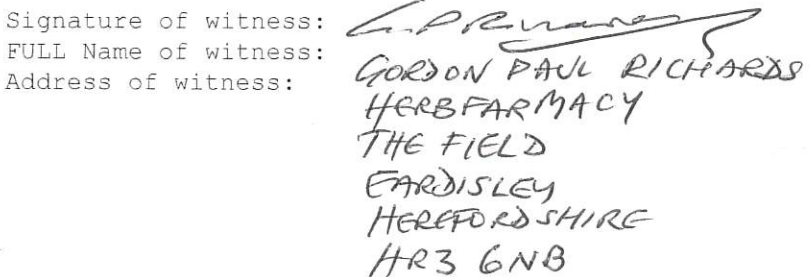 Signature of witness:
FULL Name of witness: GORDON PAUL RICHARDS
Address of witness: HERBFARMACY
THE FIELD
EARDISLEY
HEREFORDSHIRE
HR3 6NB